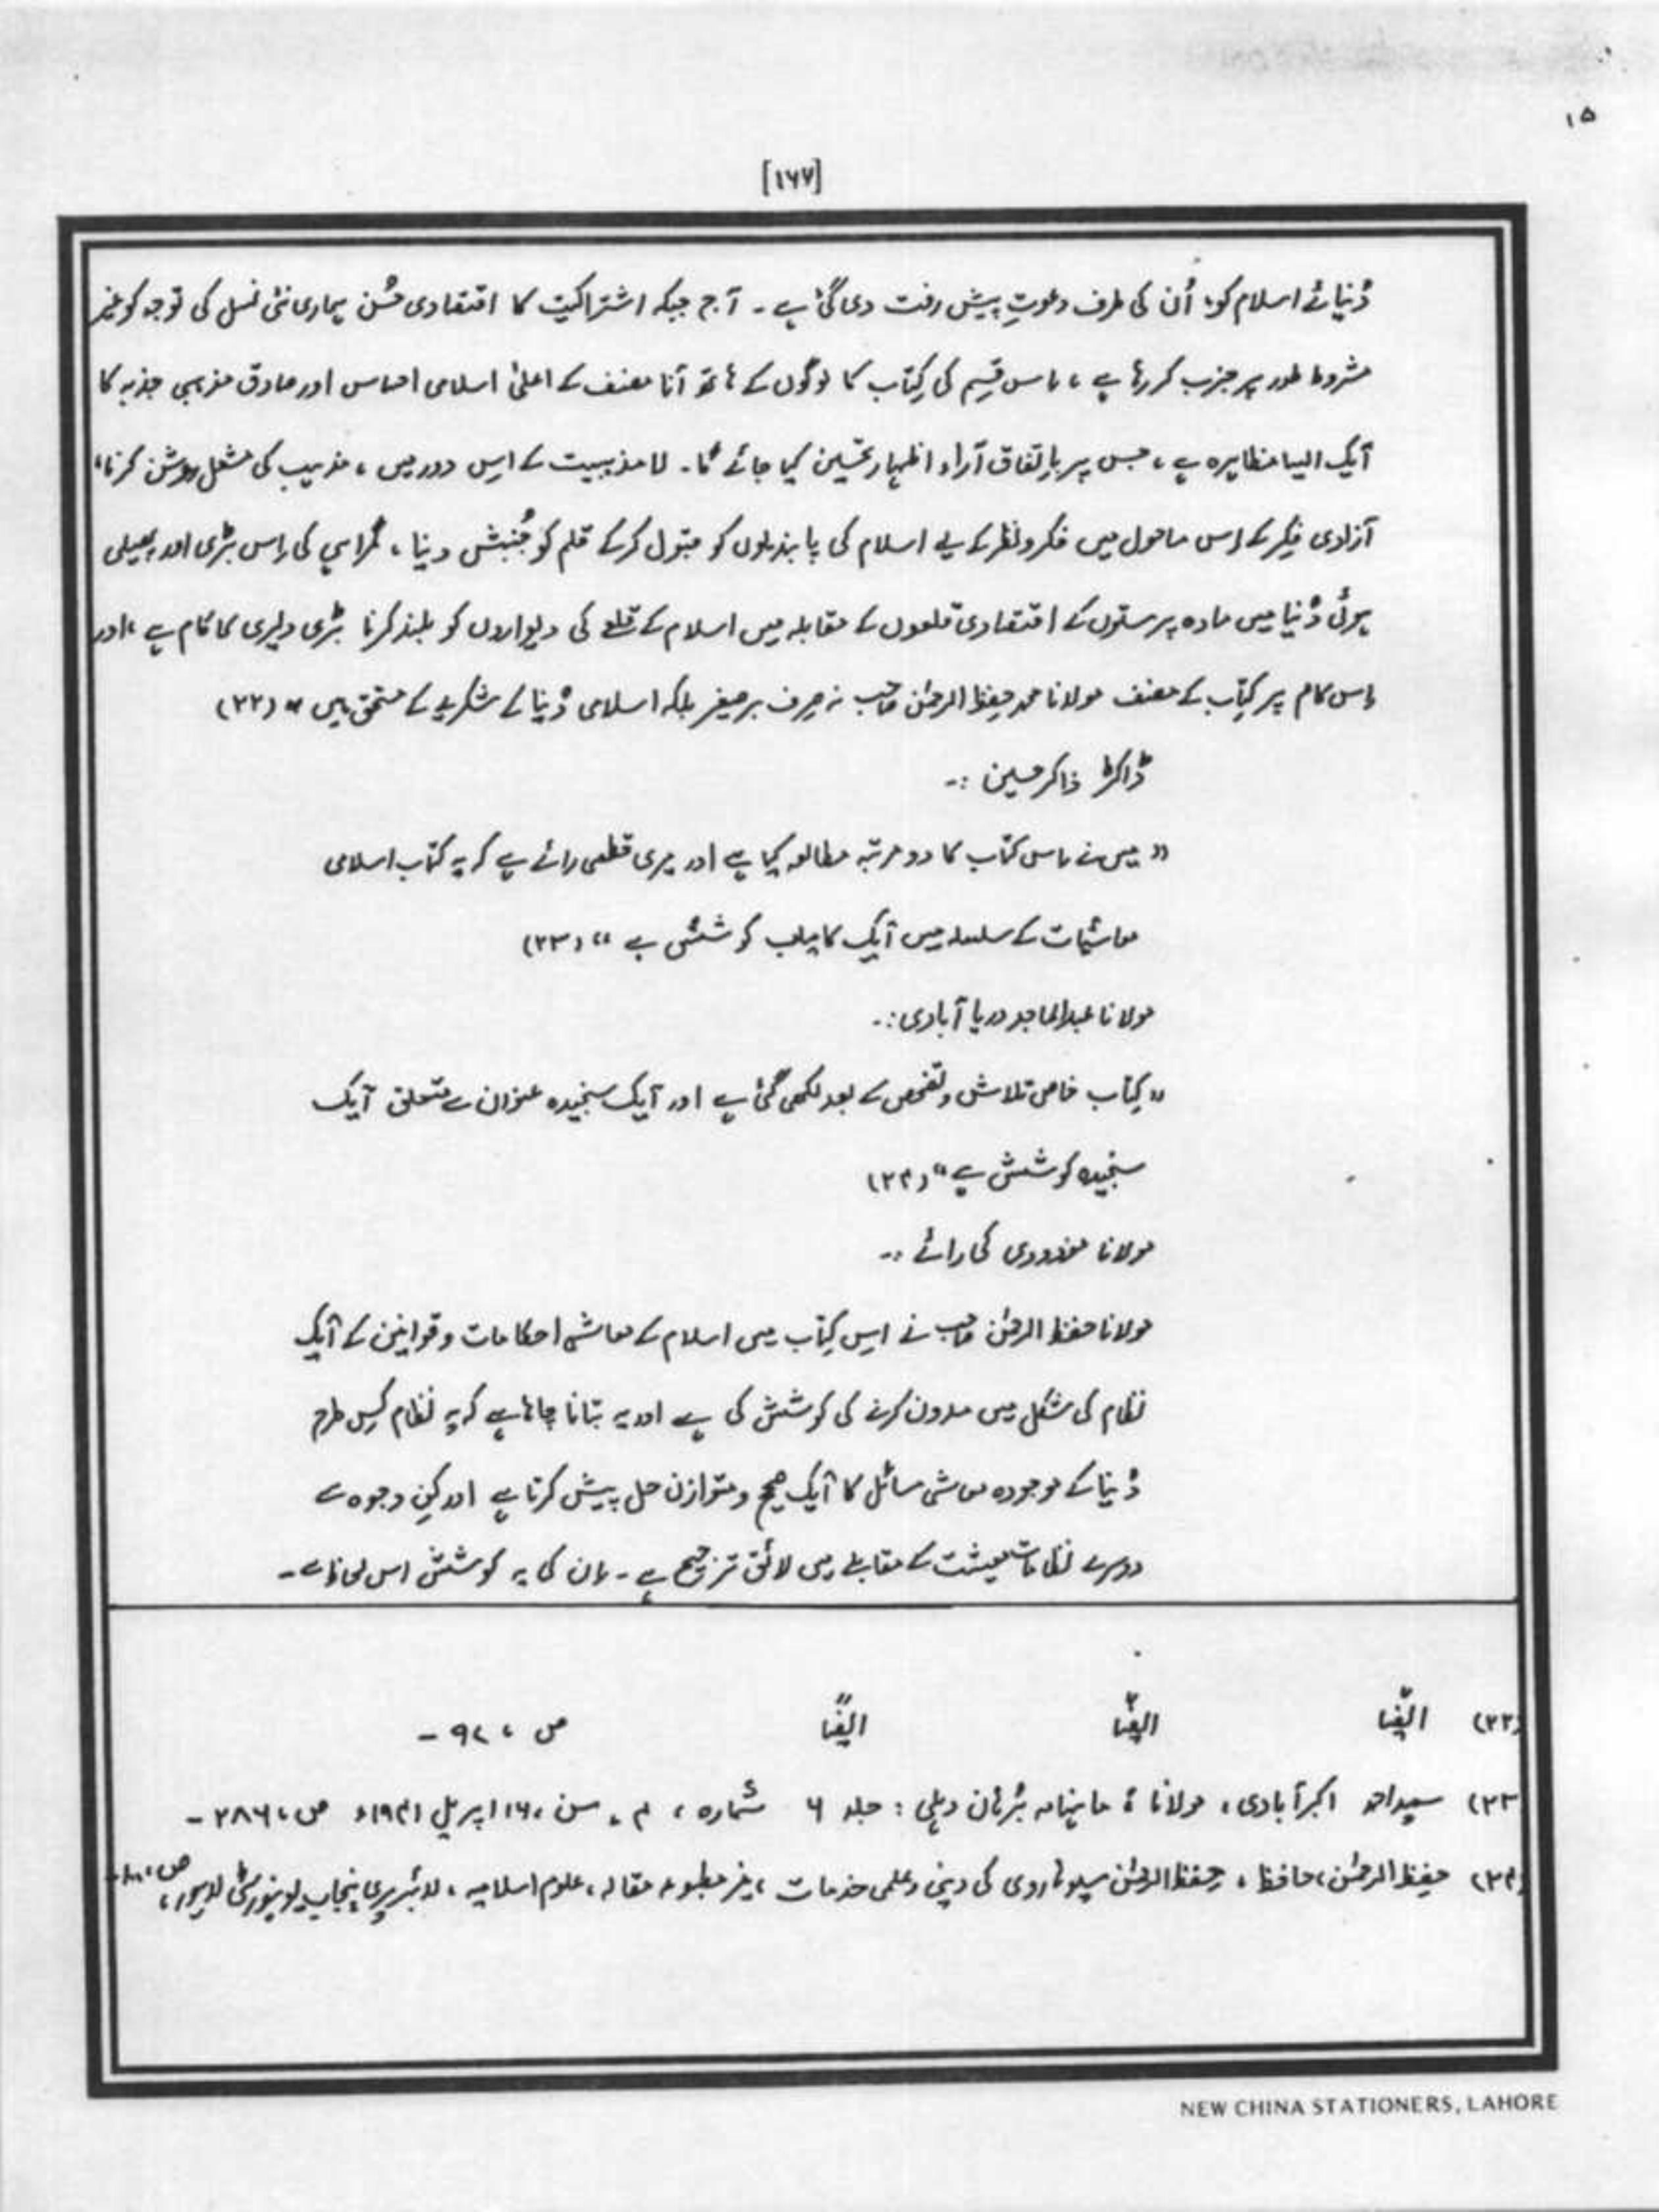 ۱۵
[۱۶۷]
دُنیائے اسلام کو، اُن کی طرف دعوتِ پیش رفت دی گئی ہے ۔ آج جبکہ اشتراکیت کا اقتصادی حُسن ہماری نئی نسل کی توجہ کو غیر
مشروط طور پر جذب کر رہا ہے ، اِس قِسم کی کِتاب کا لوگوں کے ہاتھ آنا مصنف کے اعلیٰ اسلامی احساس اور صادق مذہبی جذبہ کا
آیک ایسا مظاہرہ ہے ، جس پر باِتفاق آراء اظہار تحسین کیا جائے گا ۔ لا مذہبیت کے اِس دور میں ، مذہب کی مشعل روشن کرنا،
آزادی فِکر کے اِس ماحول میں فکر و نظر کے لیے اسلام کی پابندیوں کو قبول کرکے قلم کو جُنبش دینا ، گمراہی کی اِس بڑی اور پھیلی
ہوئی دُنیا میں مادہ پرستوں کے اقتصادی قلعوں کے مقابلہ میں اسلام کے قلعے کی دیواروں کو بلند کرنا بڑی دلیری کا کام ہے ، اور
اِس کام پر کِتاب کے مصنف مولانا محمد حِفظ الرحمٰن صاحب نہ صِرف برصغیر بلکہ اسلامی دُنیا کے شکریے کے مستحق ہیں " (۲۲)
ڈاکٹر ذاکر حسین :-
" میں نے اِس کتاب کا دو مرتبہ مطالعہ کیا ہے اور میری قطعی رائے ہے کہ یہ کتاب اسلامی
معاشیات کے سلسلہ میں آیک کامیاب کوشش ہے " (۲۳)
مولانا عبدالماجد دریا آبادی :-
" کِتاب خاص تلاش و تفحص کے بعد لکھی گئی ہے اور آیک سنجیدہ عنوان سے متعلق آیک
سنجیدہ کوشش ہے " (۲۴)
مولانا مودودی کی رائے :-
مولانا حفظ الرحمٰن صاحب نے اِس کِتاب میں اسلام کے معاشی احکامات و قوانین کے آیک
نظام کی شکل میں مدون کرنے کی کوشش کی ہے اور یہ بتانا چاہا ہے کہ یہ نظام کِس طرح
دُنیا کے موجودہ معاشی مسائل کا آیک صحیح و متوازن حل پیش کرتا ہے اور کِن وجوہ سے
دوسرے نظامات معیشت کے مقابلے میں لائق ترجیح ہے ۔ اِن کی یہ کوشش اس لحاظ سے ۔
(۲۲) ایضًا ایضًا ایضًا ص ، ۹۲ ۔
(۲۳) سعید احمد اکبرآبادی ، مولانا ، ماہنامہ بُرہان دہلی : جلد ۶ شمارہ ، ۴ ، سن ، ۱۶ اپریل ۱۹۴۱ء ص ، ۲۸۶ ۔
(۲۴) حِفظ الرحمٰن ، حافظ ، حِفظ الرحمٰن سیوہاروی کی دینی و علمی خدمات ، غیر مطبوعہ مقالہ ، علوم اسلامیہ ، لائبریری پنجاب یونیورسٹی لاہور ، ص ،
NEW CHINA STATIONERS, LAHORE